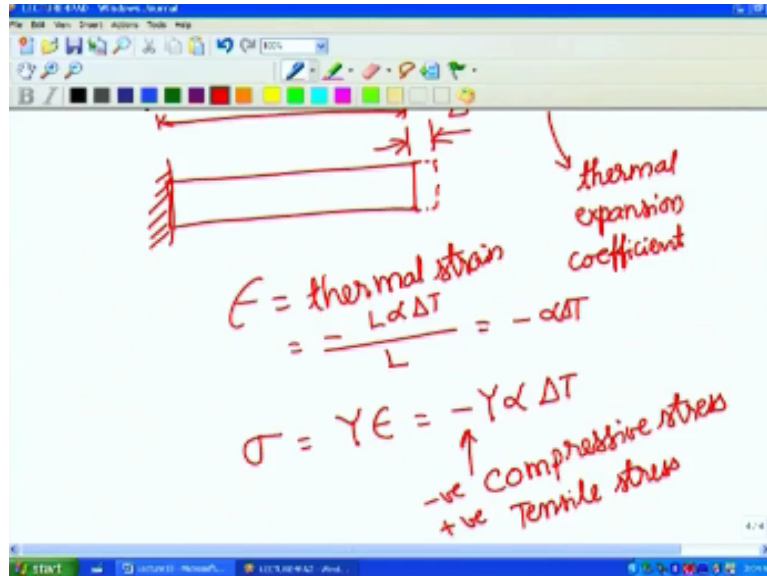 File Edit View Insert Actions Tools Help
100%
B I
thermal
expansion
coefficient
ϵ = thermal strain
= - LαΔT / L = - αΔT
σ = Yϵ = - YαΔT
-ve Compressive stress
+ve Tensile stress
4/4
start